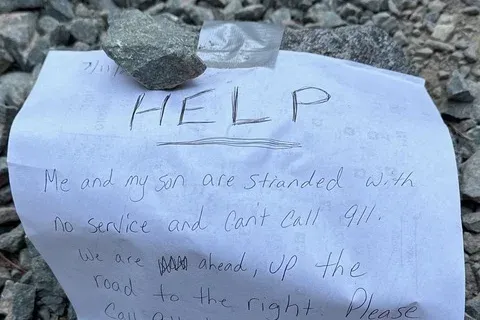 HELP
Me and my son are stranded with
no service and can't call 911.
We are ahead, up the
road to the right. Please
Call